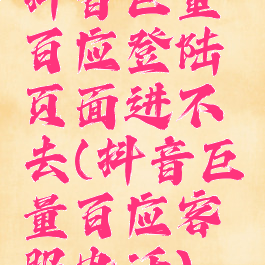 抖音巨量
百应登陆
页面进不
去(抖音巨
量百应客
服电话)